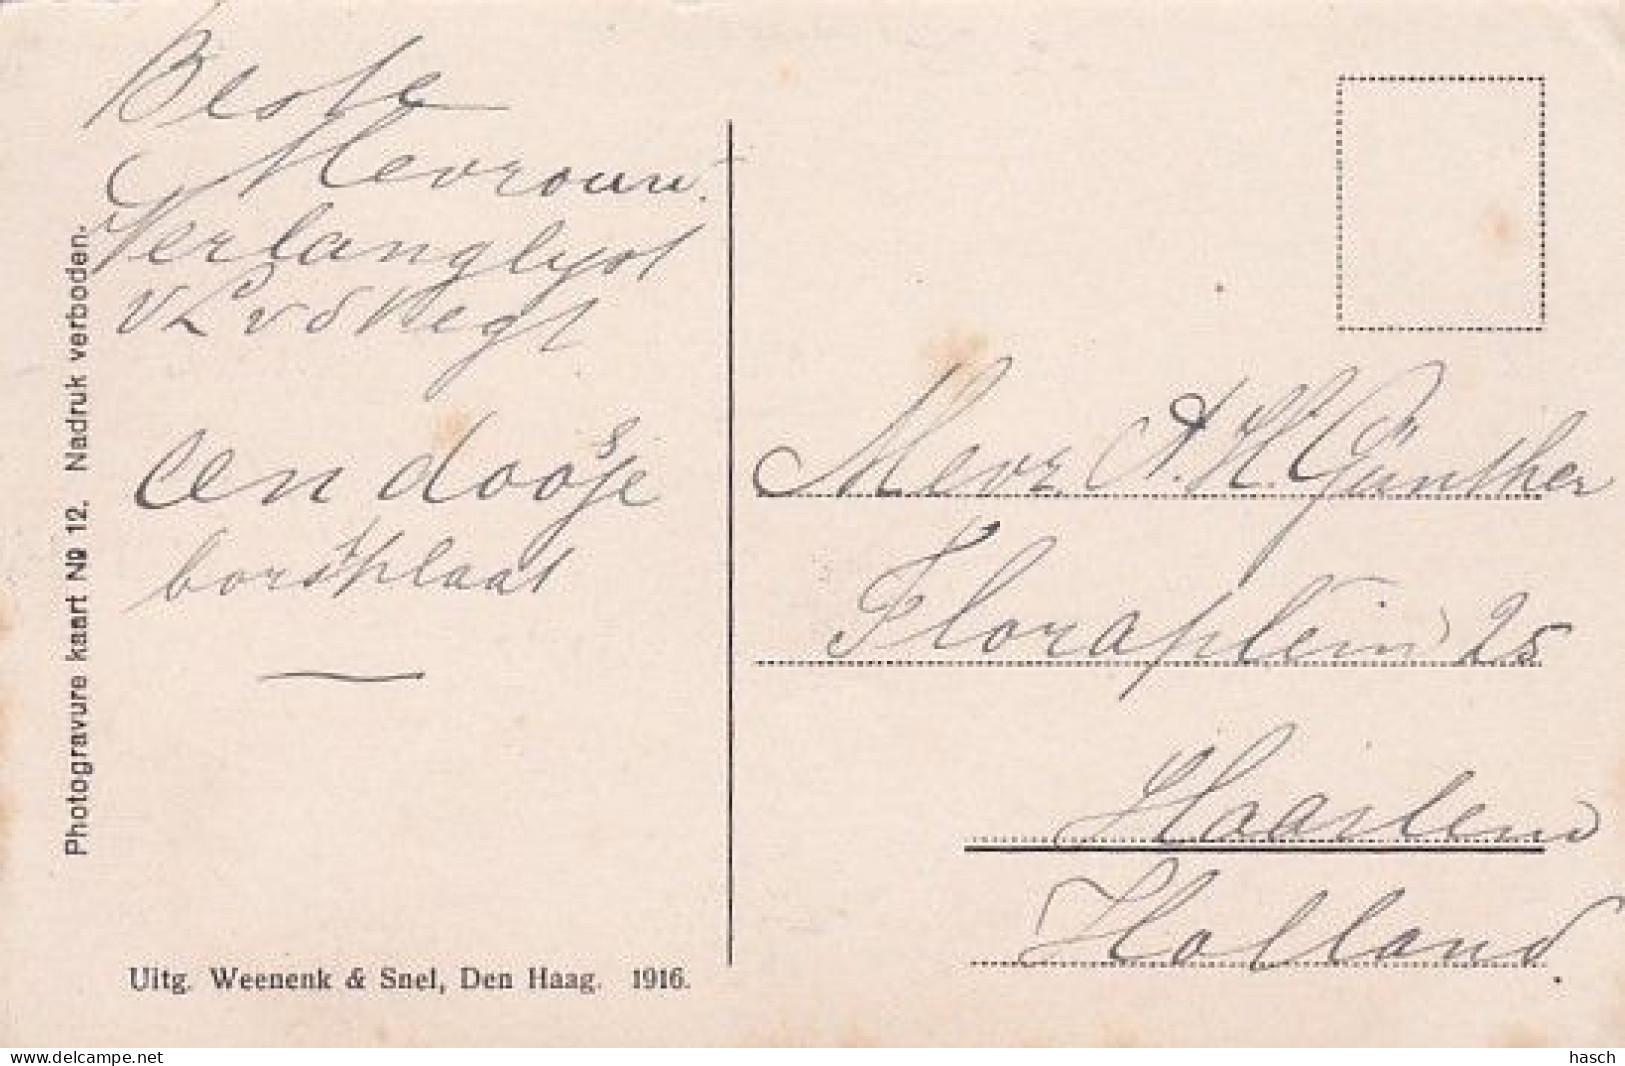 Beste
Mevrouw.
Verlanglyst
een doosje
borstplaat
Mevr. A. H. Günther
Floraplein 25
Haarlem
Holland.
Photogravure kaart No 12. Nadruk verboden.
Uitg. Weenenk & Snel, Den Haag. 1916.
delcampe.net
hasch